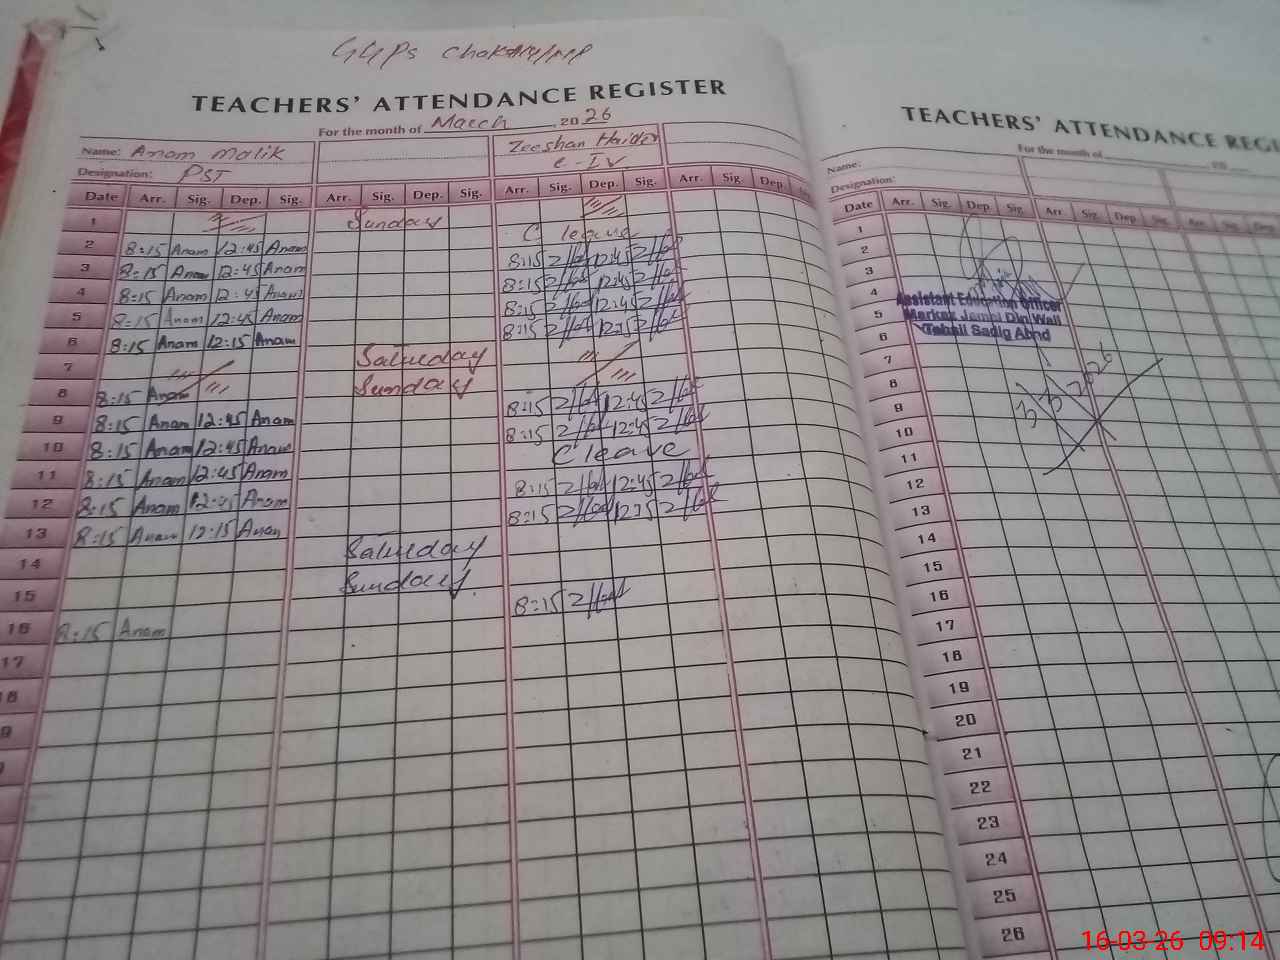 TEACHERS' ATTENDANCE REGISTER
For the month of March 2026
Name: Anam Malik
Zeeshan Haider
Designation: PST
C-IV
Date Arr. Sig. Dep. Sig. Arr. Sig. Dep. Sig. Arr. Sig. Dep. Sig. Arr. Sig. Dep.
1 Sunday
2 8:15 Anam 12:45 Anam C leave
3 8:15 Anam 12:45 Anam 8:15 12:45
4 8:15 Anam 12:45 Anam 8:15 12:45
5 8:15 Anam 12:45 Anam 8:15 12:45
6 8:15 Anam 12:15 Anam 8:15
7 Saturday
8 Sunday
8:15 Anam
9 8:15 Anam 12:45 Anam 8:15 12:45
10 8:15 Anam 12:45 Anam 8:15 12:45
11 8:15 Anam 12:45 Anam C leave
12 8:15 Anam 12:45 Anam 8:15 12:45
13 8:15 Anam 12:15 Anam 8:15
14 Saturday
15 Sunday
16 8:15 Anam 8:15
17
18
TEACHERS' ATTENDANCE REGI
For the month of 20
Name:
Designation:
Date Arr. Sig. Dep Sig. Arr. Sig. Dep Sig. Arr. Sig. Dep
1
2
3
4
5
6
7
8
9
10
11
12
13
14
15
16
17
18
19
20
21
22
23
24
25
26
Assistant Education Officer
Markaz Jamal Din Wali
Tehsil Sadiq Abad
3/3/2026
16-03-26 09:14